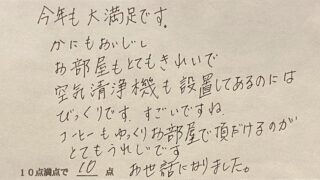 今年も大満足です。
かにもおいしし
お部屋もとてもきれいで
空気清浄機も設置してあるのには
びっくりです。すごいですね
コーヒーもゆっくりお部屋で頂だけるのが
とてもうれしです
10点満点で 10 点
お世話になりました。